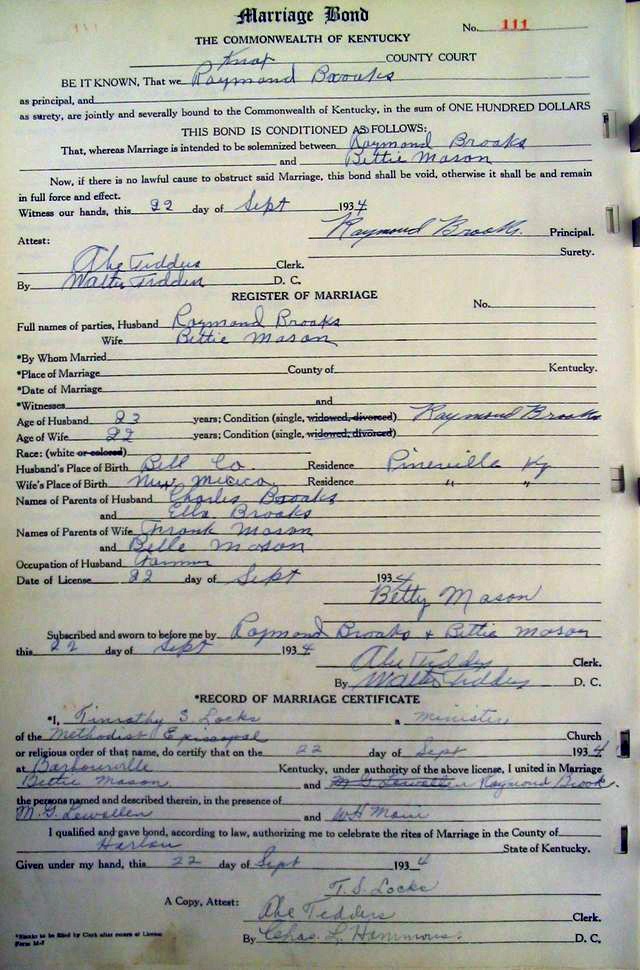 Marriage Bond
No. 111
THE COMMONWEALTH OF KENTUCKY
Knox COUNTY COURT
BE IT KNOWN, That we Raymond Brooks
as principal, and
as surety, are jointly and severally bound to the Commonwealth of Kentucky, in the sum of ONE HUNDRED DOLLARS
THIS BOND IS CONDITIONED AS FOLLOWS:
That, whereas Marriage is intended to be solemnized between Raymond Brooks
and Bettie Mason
Now, if there is no lawful cause to obstruct said Marriage, this bond shall be void, otherwise it shall be and remain
in full force and effect.
Witness our hands, this 22 day of Sept 1934
Raymond Brooks. Principal.
Attest: Surety.
Abe Tedders Clerk.
By Walter Tedders D. C.
REGISTER OF MARRIAGE
No.
Full names of parties, Husband Raymond Brooks
Wife Bettie Mason
*By Whom Married
*Place of Marriage County of Kentucky.
*Date of Marriage
*Witnesses and
Age of Husband 23 years; Condition (single, widowed, divorced) Raymond Brooks
Age of Wife 22 years; Condition (single, widowed, divorced)
Race: (white or colored)
Husband's Place of Birth Bell Co. Residence Pineville Ky
Wife's Place of Birth New Mexico Residence " "
Names of Parents of Husband Charles Brooks
and Ella Brooks
Names of Parents of Wife Frank Mason
and Belle Mason
Occupation of Husband Farmer
Date of License 22 day of Sept 1934
Betty Mason
Subscribed and sworn to before me by Raymond Brooks & Bettie Mason
this 22 day of Sept 1934
Abe Tedders Clerk.
By Walter Tedders D. C.
*RECORD OF MARRIAGE CERTIFICATE
*I, Timothy S. Locks a minister
of the Methodist Episcopal Church
or religious order of that name, do certify that on the 22 day of Sept 1934
at Barbourville Kentucky, under authority of the above license, I united in Marriage
Bettie Mason and M G Lewallen Raymond Brook
the persons named and described therein, in the presence of
M. G. Lewallen and WH Main
I qualified and gave bond, according to law, authorizing me to celebrate the rites of Marriage in the County of
Harlan State of Kentucky.
Given under my hand, this 22 day of Sept 1934
T. S. Locks
A Copy, Attest: Abe Tedders Clerk.
*Blanks to be filed by Clerk after return of License
Form M-F
By Chas. L. Hammons. D. C.